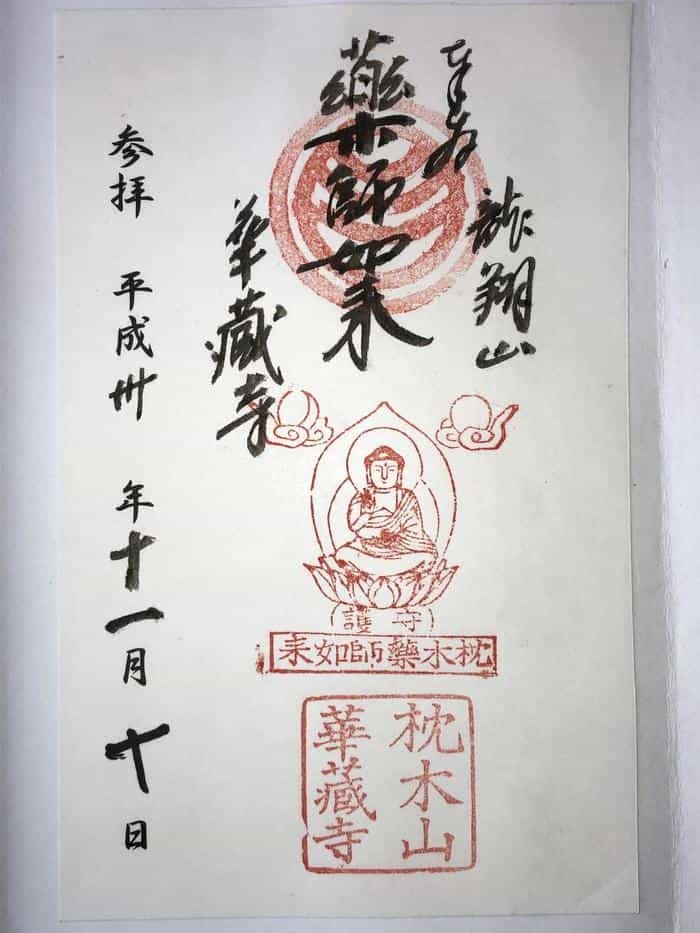 奉拝
龍翔山
藥師如来
華藏寺
参拝 平成卅年十一月十日
守護
枕木藥師如来
枕木山
華藏寺